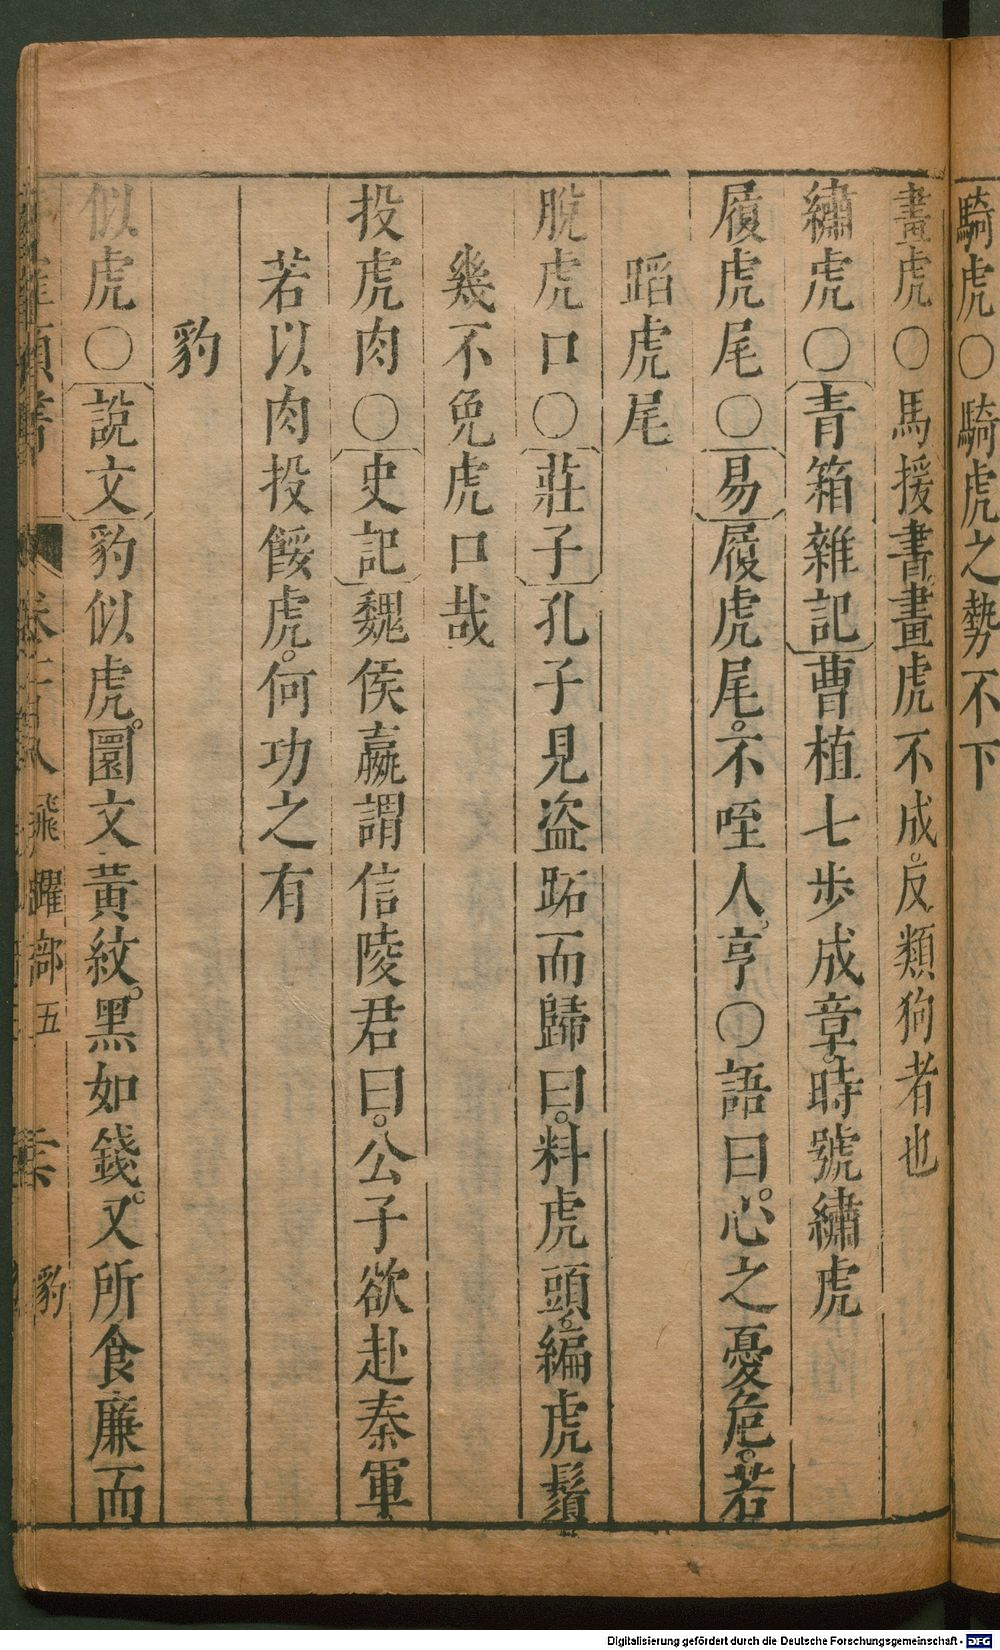 騎虎○騎虎之勢不下
畫虎○馬援書。畫虎不成。反類狗者也
繡虎○青箱雜記曹植七步成章。時號繡虎
履虎尾○易履虎尾。不咥人。亨○語曰。心之憂危。若
蹈虎尾
脫虎口○莊子孔子見盜跖而歸曰。料虎頭。編虎鬚。
幾不免虎口哉
投虎肉○史記魏侯嬴謂信陵君曰。公子欲赴秦軍。
若以肉投餒虎。何功之有
豹
似虎○說文豹似虎。圜文黃紋。黑如錢。又所食廉而
飛躍部五 豹
Digitalisierung gefördert durch die Deutsche Forschungsgemeinschaft - DFG